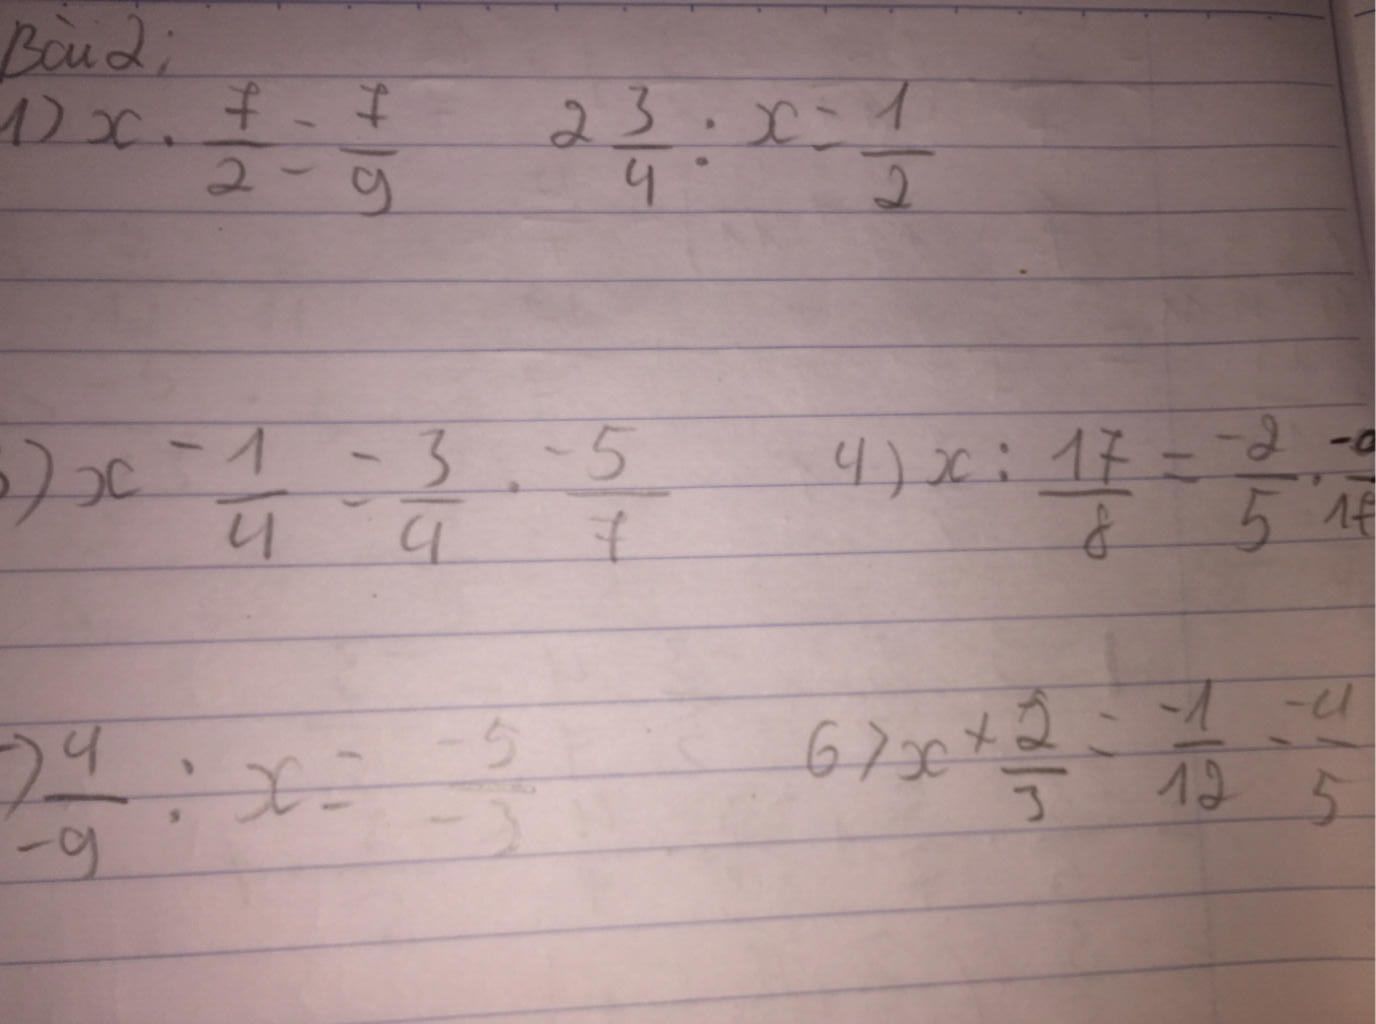 Bài 2:
1) x . 7/2 = 7/9    2 3/4 : x = 1/2
) x - 1/4 = 3/4 . -5/7    4) x : 17/8 = -2/5 .
) 4/-9 : x = -5/-3    6) x + 2/3 = -1/12 - -4/5